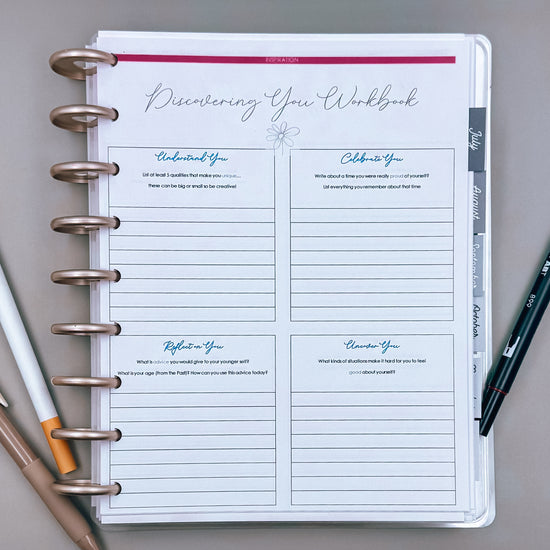 INSPIRATION
Discovering You Workbook
Understand You
List at least 5 qualities that make you unique....
these can be big or small to be creative!
Celebrate You
Write about a time you were really proud of yourself?
List everything you remember about that time.
Reflect on You
What is advice you would give to your younger self?
What is your age (from the Past)? How can you use this advice today?
Uncover You
What kinds of situations make it hard for you to feel
good about yourself?
July
August
September
October